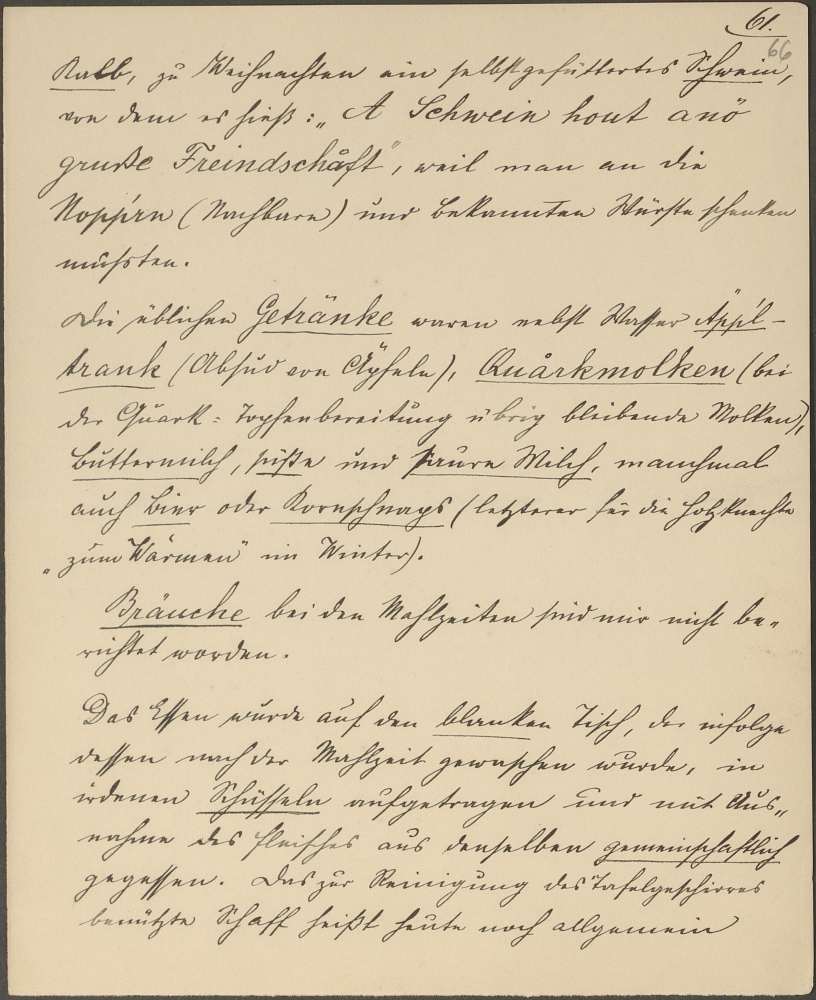 61.
66
Kalb, zu Weihnachten ein selbstgefüttertes Schwein,
von dem es hieß: „A Schwein hout anö
gruße Freindschåft", weil man an die
Noppŕn (Nachbarn) und Bekannten Würste schenken
mußten.
Die üblichen Getränke waren nebst Wasser Äppl-
trank (Absud von Äpfeln), Quårkmolken (bei
der Quark-Topfenbereitung übrig bleibende Molken),
Buttermilch, süße und saure Milch, manchmal
auch Bier oder Kornschnaps (letzterer für die Holzknechte
„zum Wärmen" im Winter).
Bräuche bei den Mahlzeiten sind mir nicht be-
richtet worden.
Das Essen wurde auf den blanken Tisch, der infolge
dessen nach der Mahlzeit gewaschen wurde, in
irdenen Schüsseln aufgetragen und mit Aus-
nahme des Fleisches aus denselben gemeinschaftlich
gegessen. Das zur Reinigung des Tafelgeschirres
benützte Schaff heißt heute noch allgemein